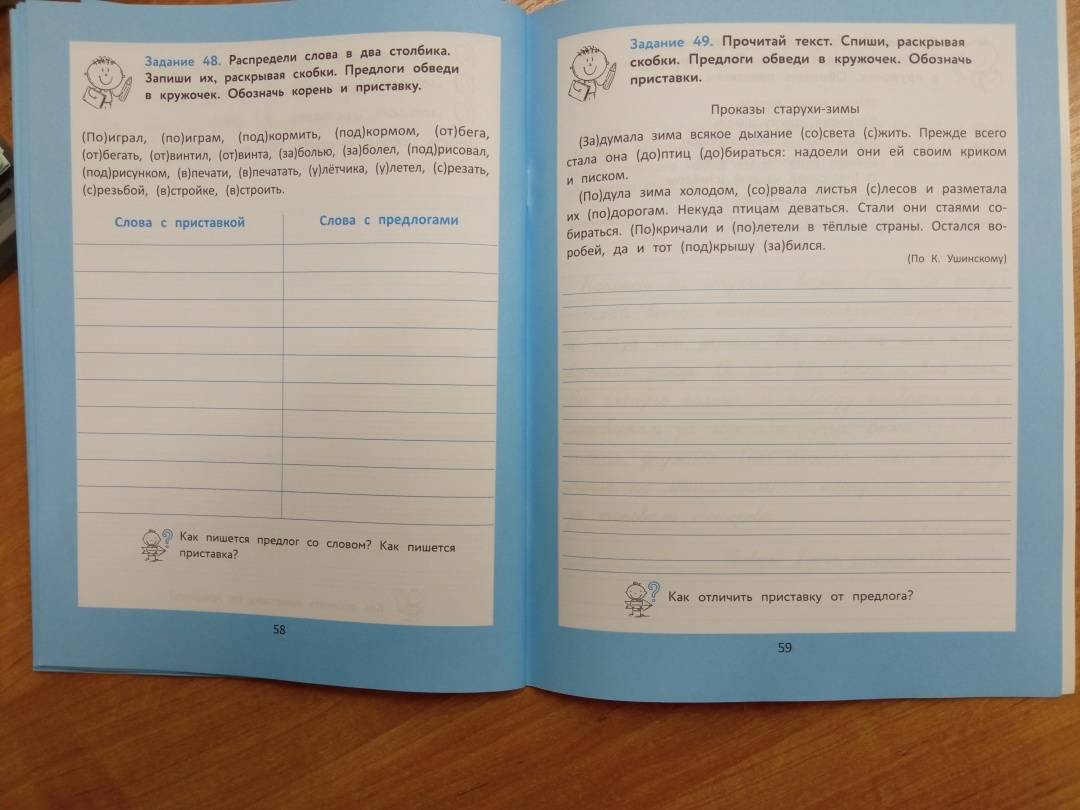 Задание 48. Распредели слова в два столбика.
Запиши их, раскрывая скобки. Предлоги обведи
в кружочек. Обозначь корень и приставку.
(По)играл, (по)играм, (под)кормить, (под)кормом, (от)бега,
(от)бегать, (от)винтил, (от)винта, (за)болью, (за)болел, (под)рисовал,
(под)рисунком, (в)печати, (в)печатать, (у)лётчика, (у)летел, (с)резать,
(с)резьбой, (в)стройке, (в)строить.
Слова с приставкой
Слова с предлогами
Как пишется предлог со словом? Как пишется
приставка?
58
Задание 49. Прочитай текст. Спиши, раскрывая
скобки. Предлоги обведи в кружочек. Обозначь
приставки.
Проказы старухи-зимы
(За)думала зима всякое дыхание (со)света (с)жить. Прежде всего
стала она (до)птиц (до)бираться: надоели они ей своим криком
и писком.
(По)дула зима холодом, (со)рвала листья (с)лесов и разметала
их (по)дорогам. Некуда птицам деваться. Стали они стаями со-
бираться. (По)кричали и (по)летели в тёплые страны. Остался во-
робей, да и тот (под)крышу (за)бился.
(По К. Ушинскому)
Как отличить приставку от предлога?
59